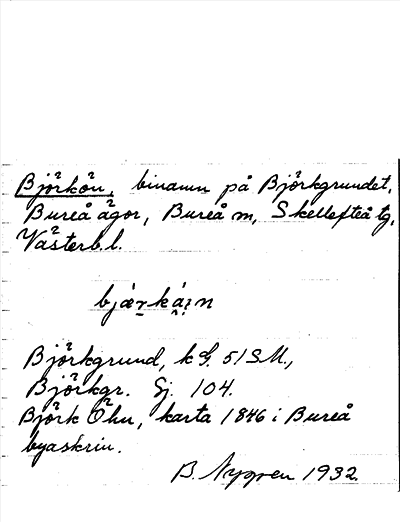 Björkön, binamn på Björkgrundet,
Bureå ägor, Bureå m, Skellefteå tg,
Västerb.l.
Björkgrund, k G. 51SM.,
Björkgr. Sj. 104.
Björk Öhn, karta 1846 i Bureå
byaskrin.
B. Nygren 1932.